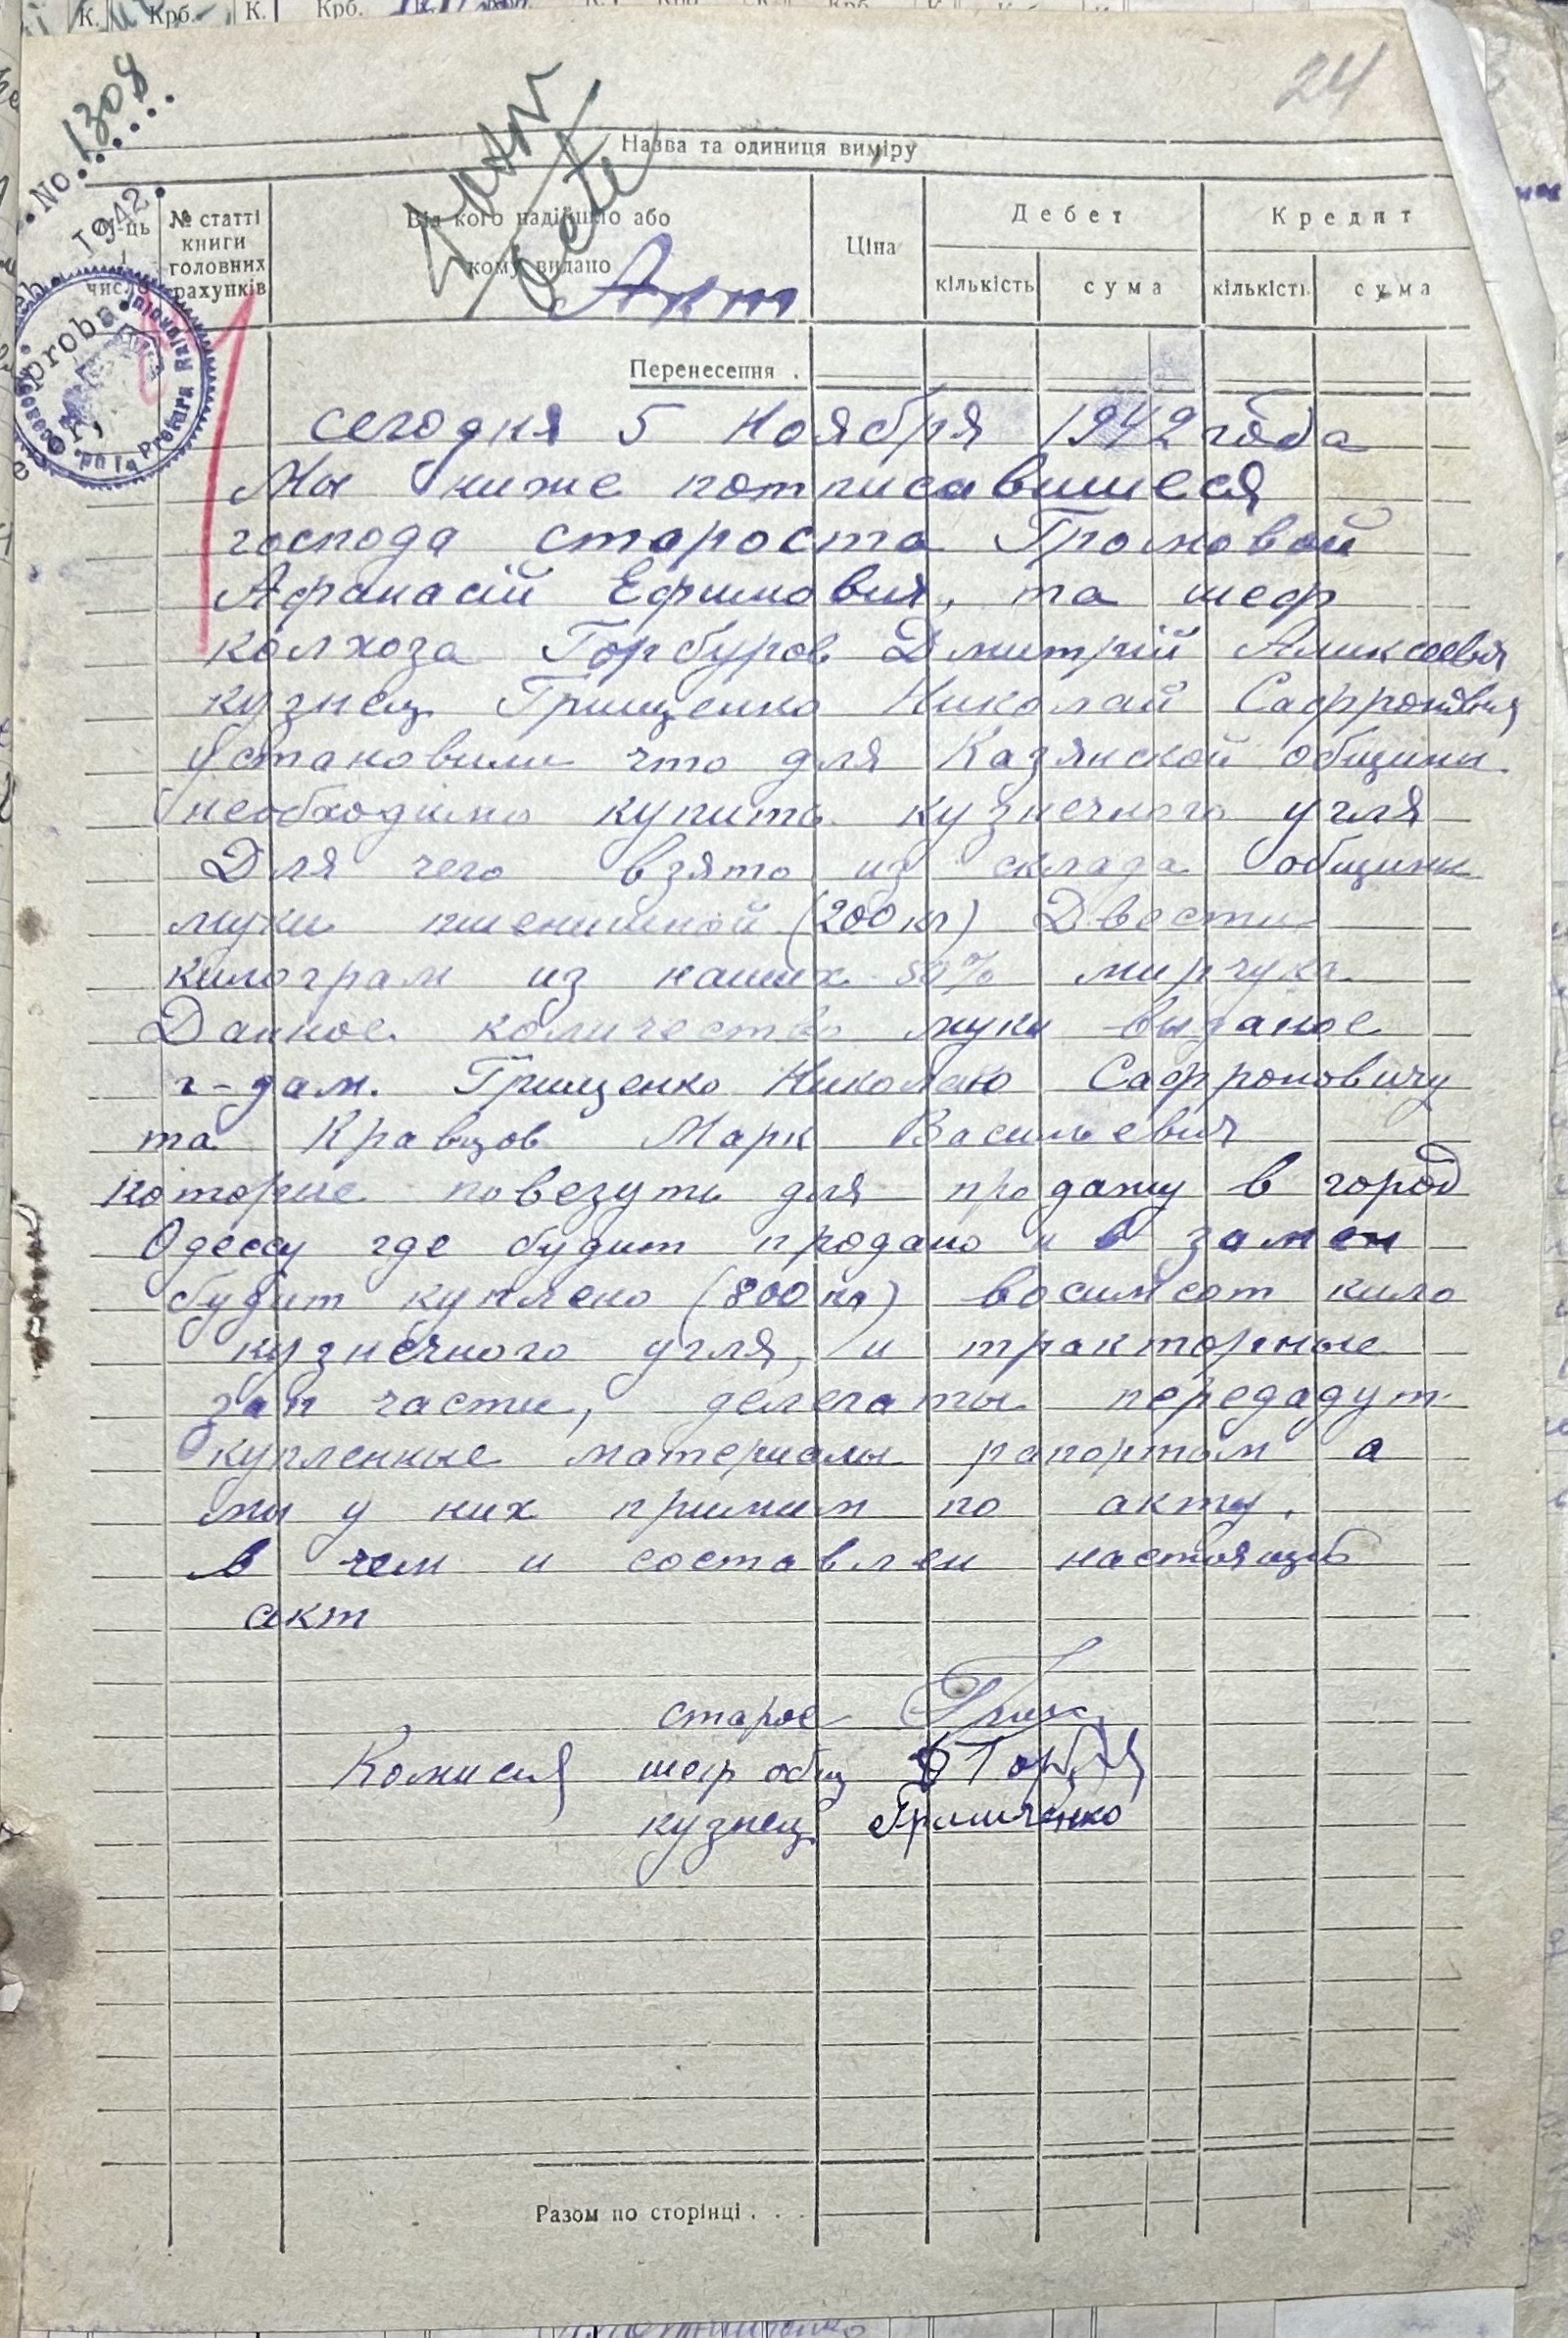 24
No. 1308
1942
Назва та одиниця виміру
№ статті книги головних рахунків
Від кого надійшло або кому видано
Ціна
Дебет
Кредит
число
кількість
сума
кількість
сума
Aproba
Акт
Перенесення .
сегодня 5 Ноября 1942 года
Мы ниже потписавшиеся
господа староста Громовой
Афанасій Ефимович, та шеф
колхоза Горбуров Дмитрій Аликсеевич
кузнец Грищенко Николай Сафронович
Установили что для Казянской общины
необходимо купить кузнечного угля
Для чего взято из склада общины
муки пшеничной (200 кг) Двести
килограм из наших 50% мирчука
Данное количество муки выданое
г-дам. Грищенко Николаю Сафроновичу
та Кравцов Марк Васильевич
которие повезуть для продажу в город
Одессу где будит продано и в замен
будит куплено (800 кг) восимсот кило
кузнечного угля, и тракторные
зап части, делегаты передадут
купленные материалы рапортом а
мы у них примим по акту.
в чем и составлен настоящий
акт
старос
Комисия шеф общ
кузнец Грищенко
Разом по сторінці . . .